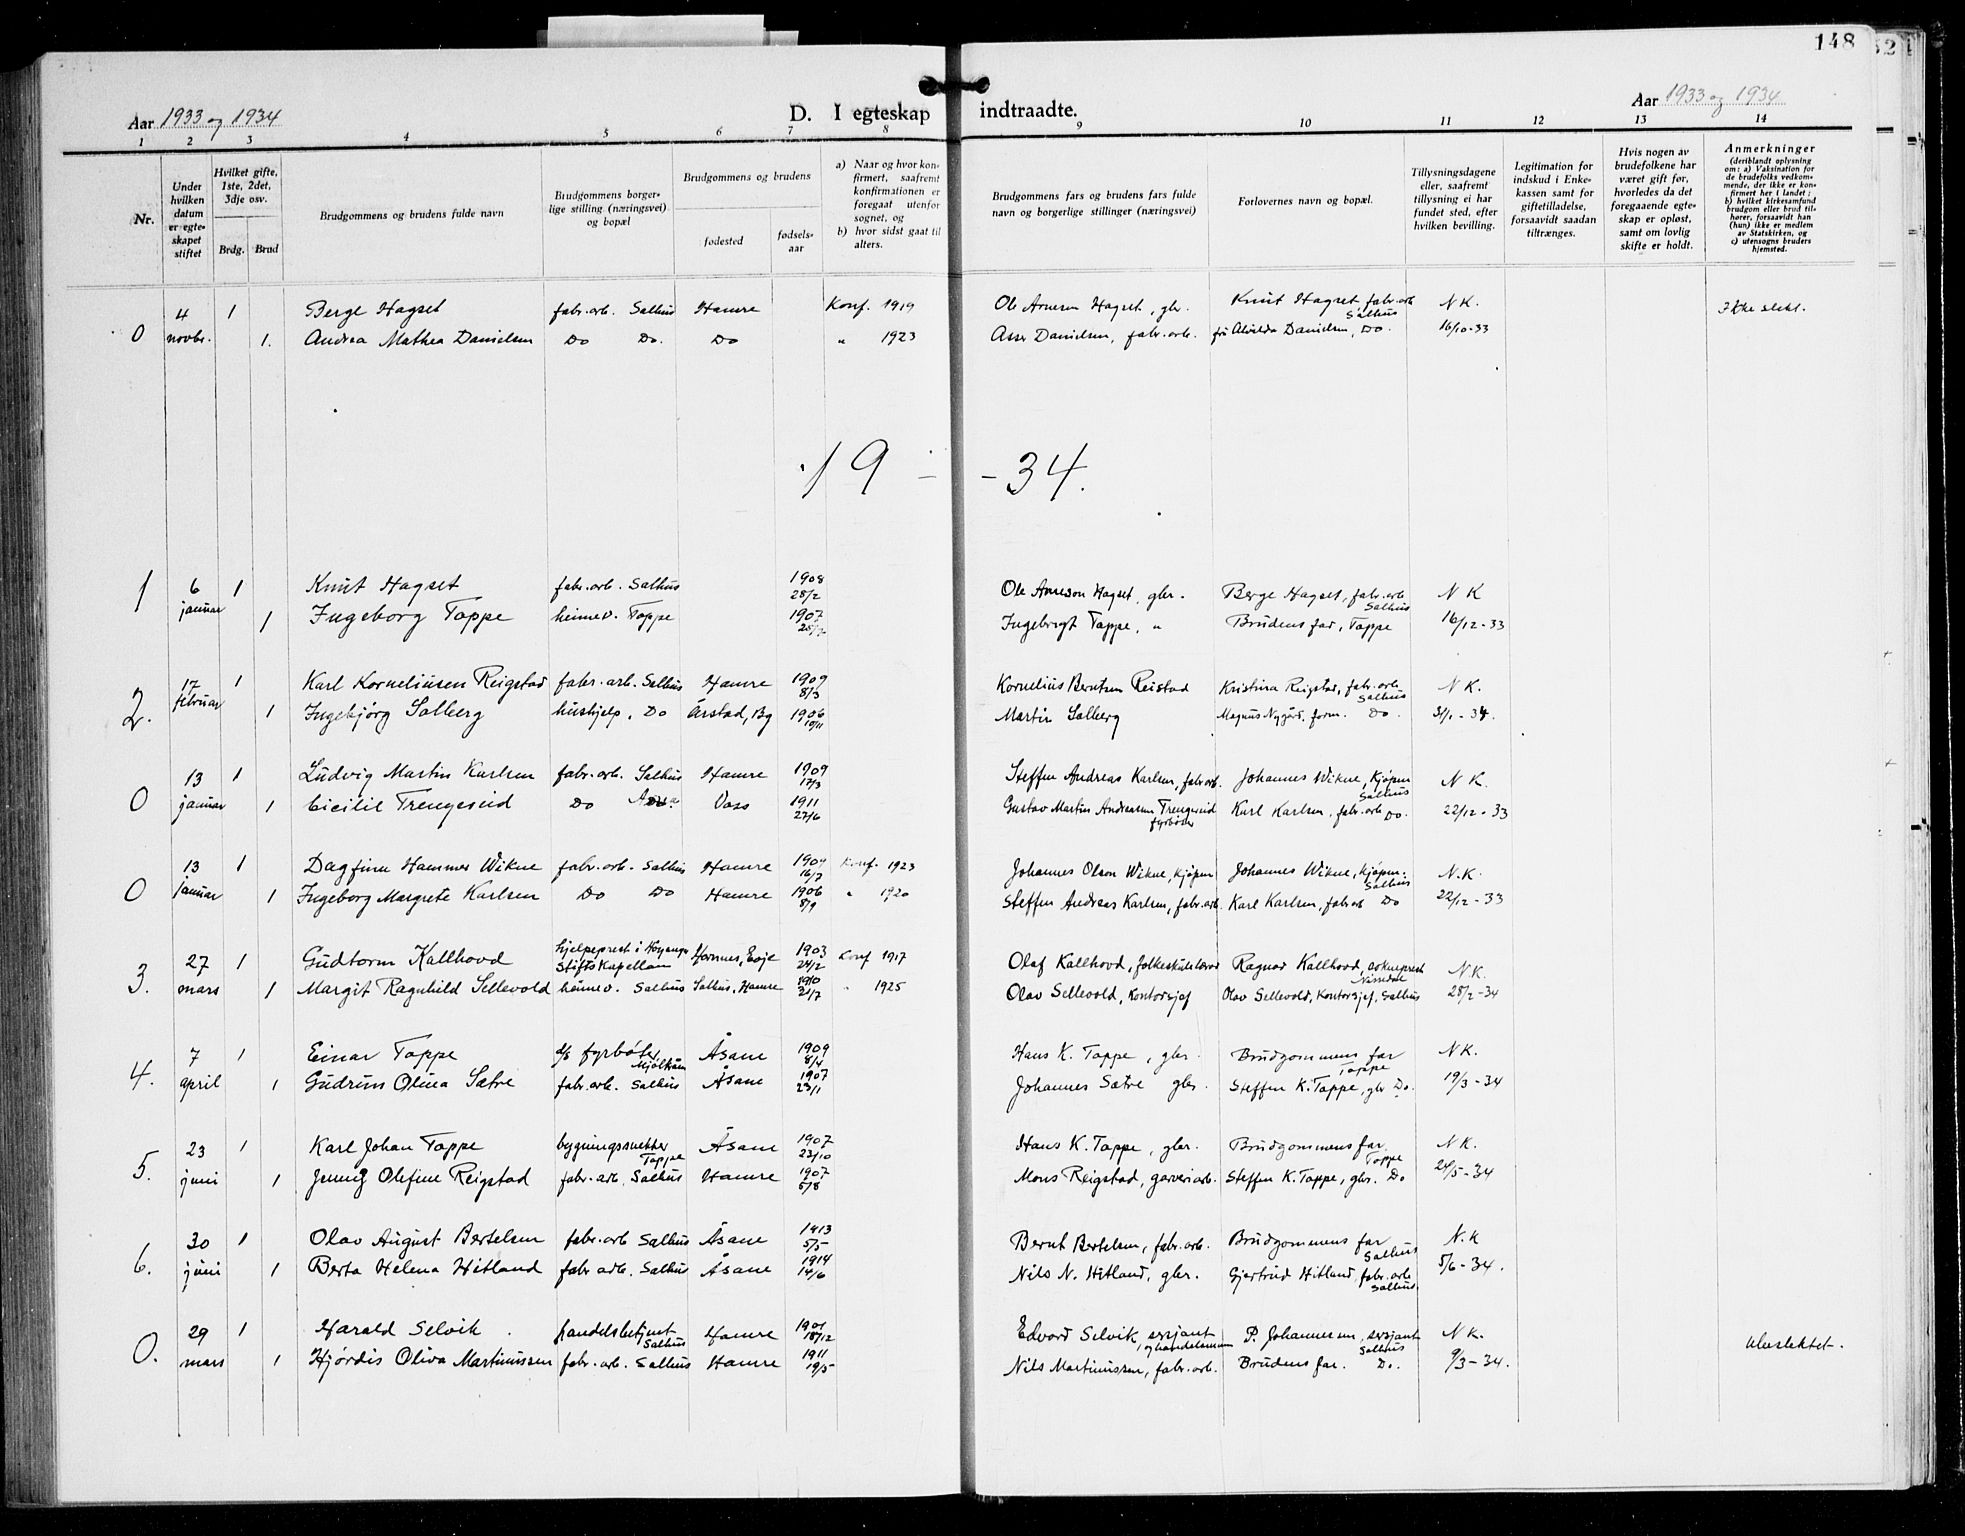 148
Aar 1933 og 1934
D. I egteskap indtraadte.
Aar 1933 og 1934
1 2 3 4 5 6 7 8 9 10 11 12 13 14
Nr.
Under hvilken datum er egteskapet stiftet
Hvilket gifte, 1ste, 2det, 3dje osv.
Brdg. Brud
Brudgommens og brudens fulde navn
Brudgommens borgerlige stilling (næringsvei) og bopæl
Brudgommens og brudens
fødested
fødselsaar
a) Naar og hvor konfirmert, saafremt konfirmationen er foregaat utenfor sognet, og
b) hvor sidst gaat til alters.
Brudgommens fars og brudens fars fulde navn og borgerlige stillinger (næringsvei)
Forlovernes navn og bopæl.
Tillysningsdagene eller, saafremt tillysning ei har fundet sted, efter hvilken bevilling.
Legitimation for indskud i Enkekassen samt for giftetilladelse, forsaavidt saadan tiltrænges.
Hvis nogen av brudefolkene har været gift før, hvorledes da det foregaaende egteskap er opløst, samt om lovlig skifte er holdt.
Anmerkninger
(deriblandt oplysning om: a) Vaksination for de brudefolks vedkommende, der ikke er konfirmert her i landet; b) hvilket kirkesamfund brudgom eller brud tilhører, forsaavidt han (hun) ikke er medlem av Statskirken, og c) utensogns bruders hjemsted.
4 1 Berge Hagset fabr. arb. Salhus Hamre Konf. 1919 Ole Arneson Hagset, gbr. Knut Hagset fabr. arb Salhus N K. Ikke slekt.
0 novbr. 1. Andrea Mathea Danielsen Do Do. Do " 1923 Asser Danielsen, fabr. arb. frå Alvilda Danielsen, Do. 16/10-33
19 - - 34.
1 6 1 Knut Hagset fabr. arb. Salhus 1908 28/2 Ole Arneson Hagset, gbr. Berge Hagset, fabr. arb Salhus N K
januar 1 Ingeborg Toppe heimev. Toppe 1907 Ingebrigt Toppe, " Brudens far, Toppe 16/12-33
2. 17 1 Karl Korneliusen Reigstad fabr. arb. Salhus Hamre 1909 8/3 Kornelius Berntsen Reistad Kristina Reigstad, fabr. arb. Salhus N K.
februar 1 Ingebjørg Solberg hushjelp, Do Årstad, Bg 1906 10/11 Martin Solberg Magnus Nygård, form. Do. 31/1-34.
13 1 Ludvig Martin Karlsen fabr. arb. Salhus Hamre 1909 17/3 Steffen Andreas Karlsen, fabr arb. Johannes Wikne, Kjøpm Salhus N K.
0 januar 1 Cicilie Trengereid Do Voss 1911 27/6 Gustav Martin Andreasen Trengereid fyrbøter Karl Karlsen, fabr. arb Do. 22/12-33
13 1 Dagfinn Hammer Wikne fabr. arb. Salhus Hamre 16/7 Konf. 1923 Johannes Olson Wikne, Kjøpm Johannes Wikne, Kjøpm. Salhus N. K.
0 januar 1 Ingeborg Margrete Karlsen Do Do Hamre 1906 8/9 " 1920 Steffen Andreas Karlsen, fabr. arb. Karl Karlsen, fabr arb Do 22/12-33
3. 27 1 Gudtorm Kallhovd hjelpeprest i Høyanger Stiftskapellan Hornnes, Evje 1903 24/2 Konf 1917 Olaf Kallhovd, folkeskulelærar Ragnar Kallhovd, sokneprest Nissedal N K.
mars 1 Margit Ragnhild Sellevold heimev. Salhus Salhus, Hamre 1910 21/7 " 1925 Olav Sellevold, Kontorsjef Olav Sellevold, Kontorsjef, Salhus 28/2-34
4. 7 1 Einar Toppe d/s fyrbøter, Mjølkeråen Åsane 1909 8/4 Hans K. Toppe, gbr. Brudgommens far Toppe N K.
april 1 Gudrun Olina Sætre fabr. arb. Salhus Åsane 1907 23/1 Johannes Sætre gbr. Steffen K. Toppe, gbr Do. 19/3-34
5. 23 1 Karl Johan Toppe bygningssnekker Toppe Åsane 1907 23/10 Hans K. Toppe, gbr. Brudgommens far. Toppe N K.
juni 1 Jenny Olefine Reigstad fabr. arb. Salhus Hamre 1907 5/8 Mons Reigstad, garveriarb. Steffen K. Toppe, gbr. Do 24/5-34
6. 30 1 Olav August Bertelsen fabr. arb Salhus Åsane 1913 5/5 Bernt Bertelsen, fabr. arb. Brudgommens far Salhus N. K
juni 1 Berta Helena Hitland fabr arb. Salhus Åsane 1914 14/6 Nils N. Hitland, gbr. Gjertrud Hitland, fabr. arb Salhus 5/6-34.
0. 29 1 Harald Selvik. handelsbetjent Salhus Hamre 1901 18/12 Edvard Selvik, sersjant, og handelsmann P. Johannesen, sersjant Salhus N K. Ubeslektet.
mars 1 Hjørdis Oliva Martinussen fabr. arb. Salhus Hamre 1911 19/5 Nils Martinussen, fabr. arb. Brudens far. Do. 9/3-34.